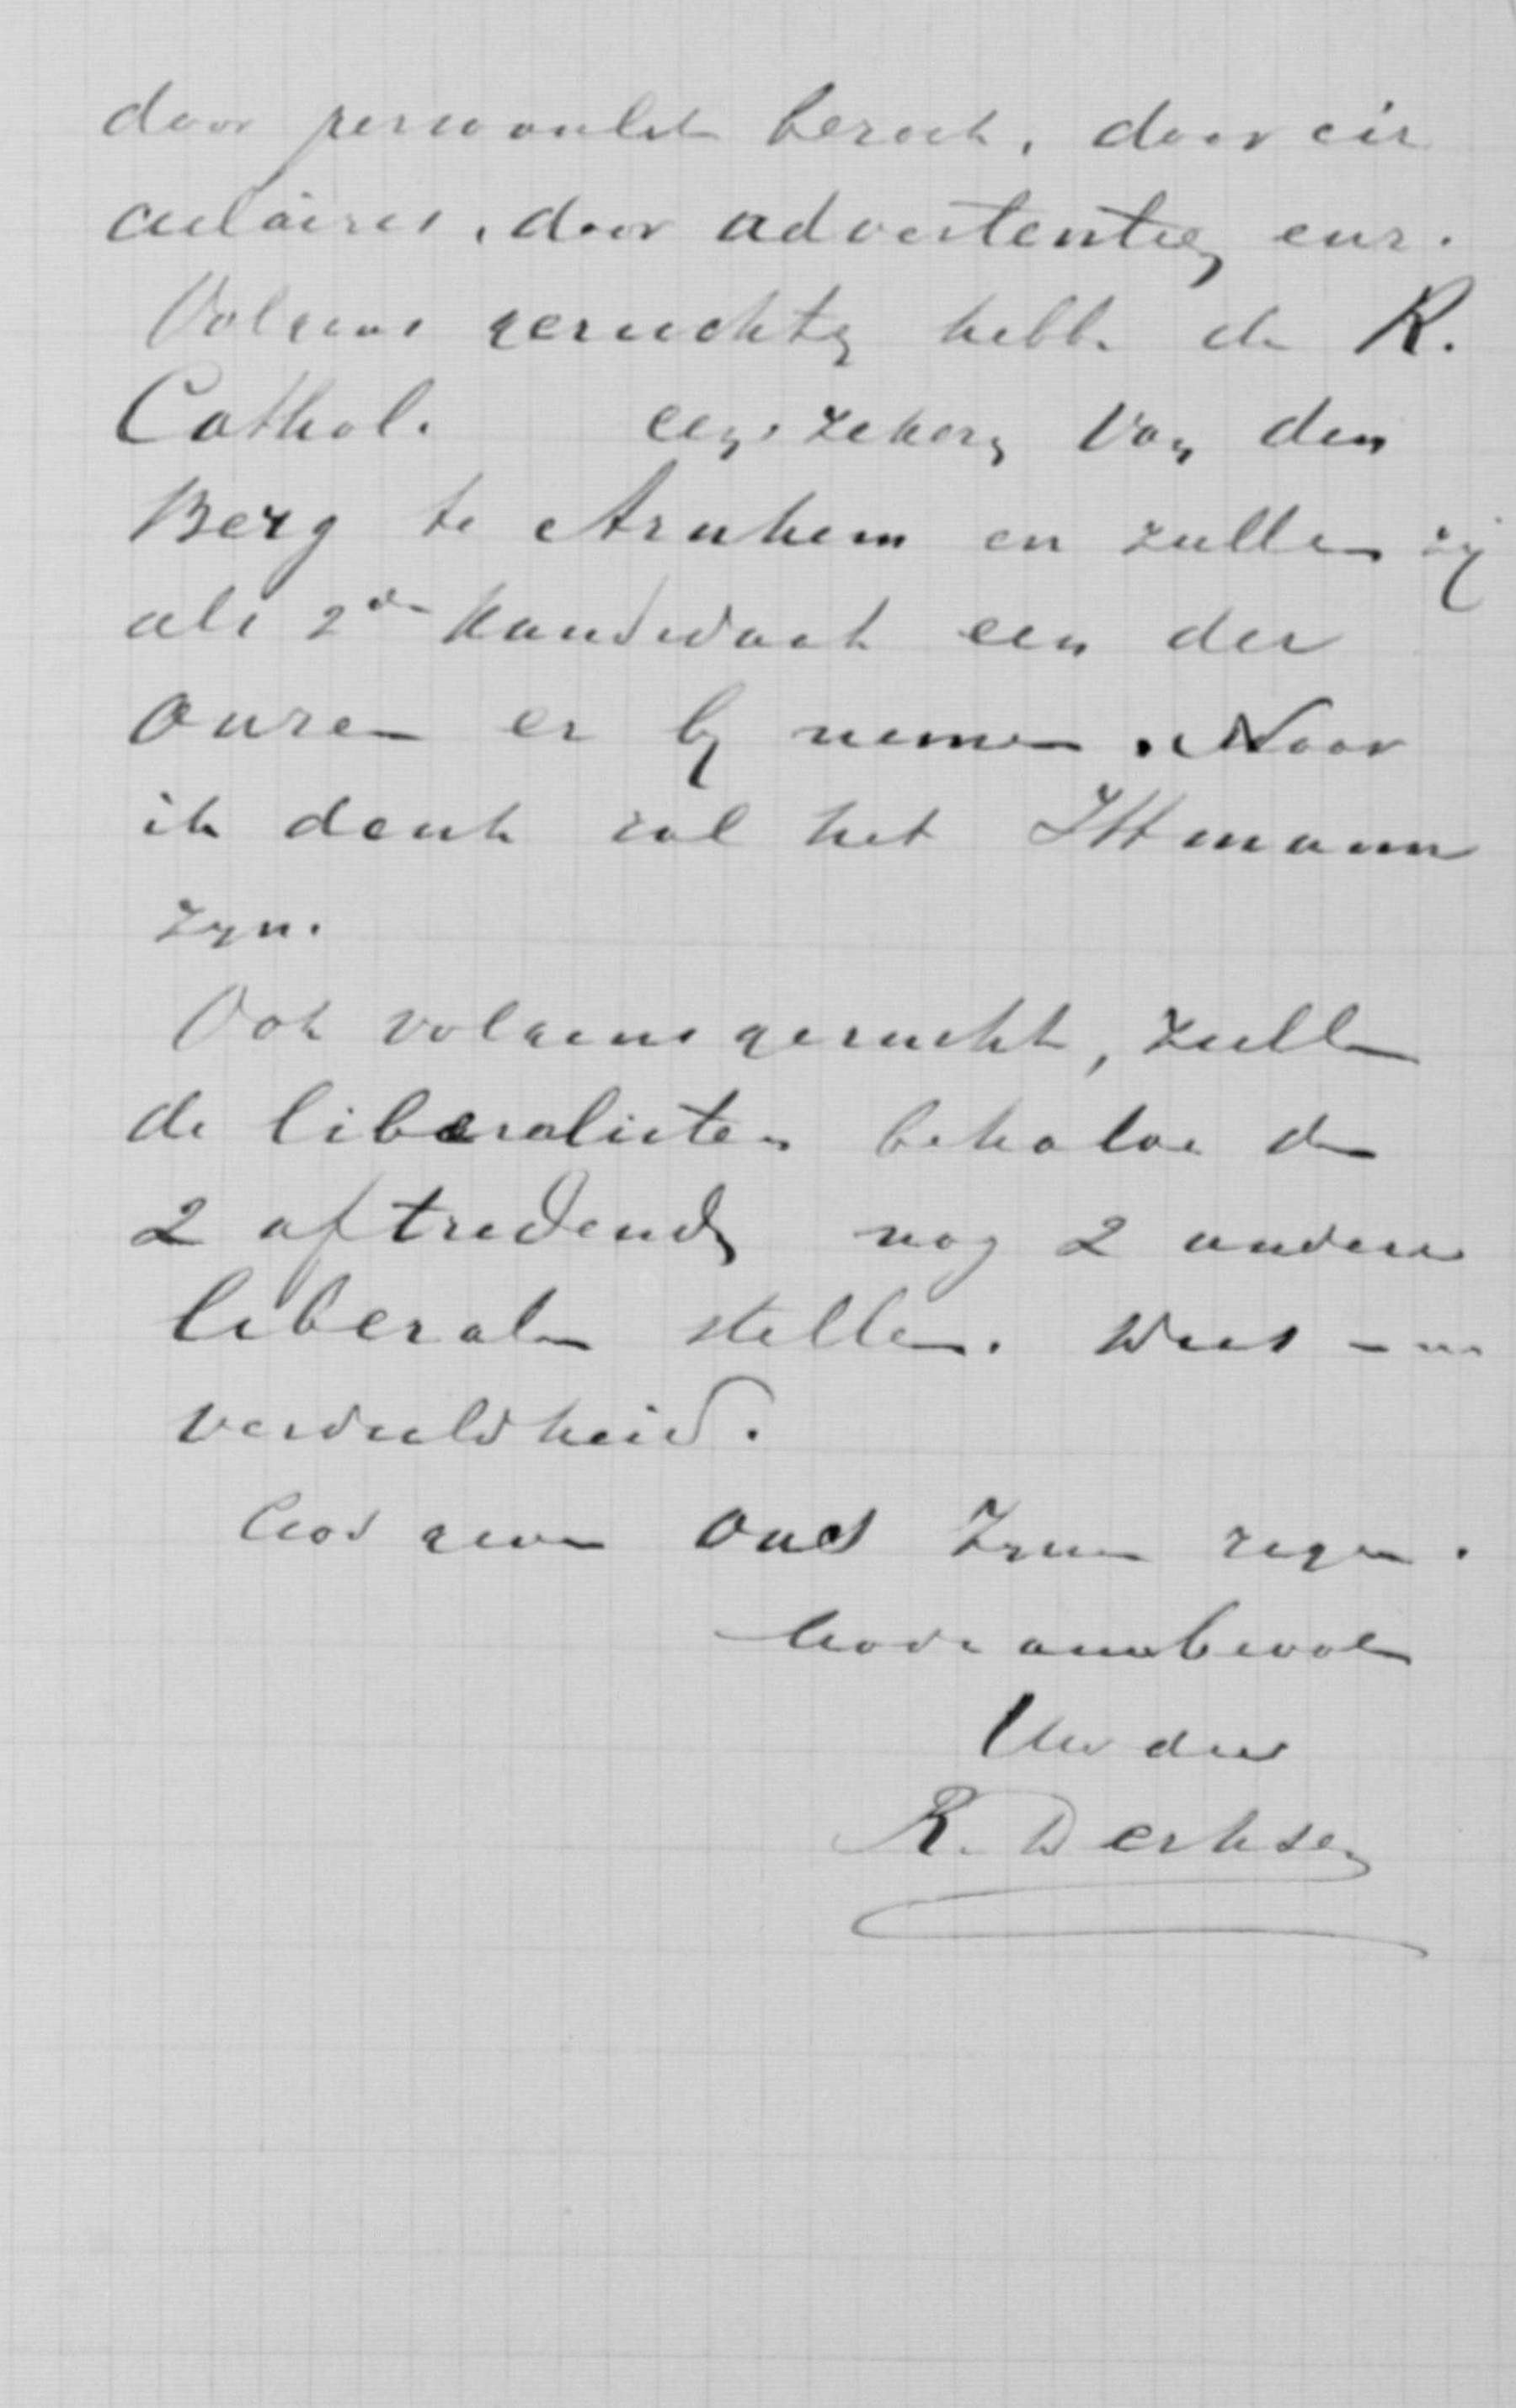 door persoonlijk bezoek, door cir
culaires, door advertentien enz.
Volgens geruchten hebben de R.
Cathol. een zekeren Van den
Berg te Arnhem en zullen zij
als 2de kandidaat een der
onzen er bij nemen. Naar
ik denk zal het Ittmann
zijn.
Ook volgens gerucht, zullen
de liberalisten behalve de
2 aftredenden nog 2 andere
liberalen stellen. Wees
verdeeldheid.
God geve ons Zijnen zegen.
Gode aanbevolen
Uw dw
R. Derksen